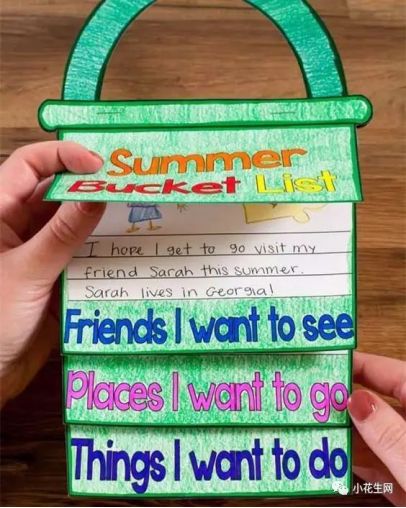 Summer
Bucket List
I hope I get to go visit my
friend Sarah this summer.
Sarah lives in Georgia!
Friends I want to see
Places I want to go
Things I want to do
小花生网